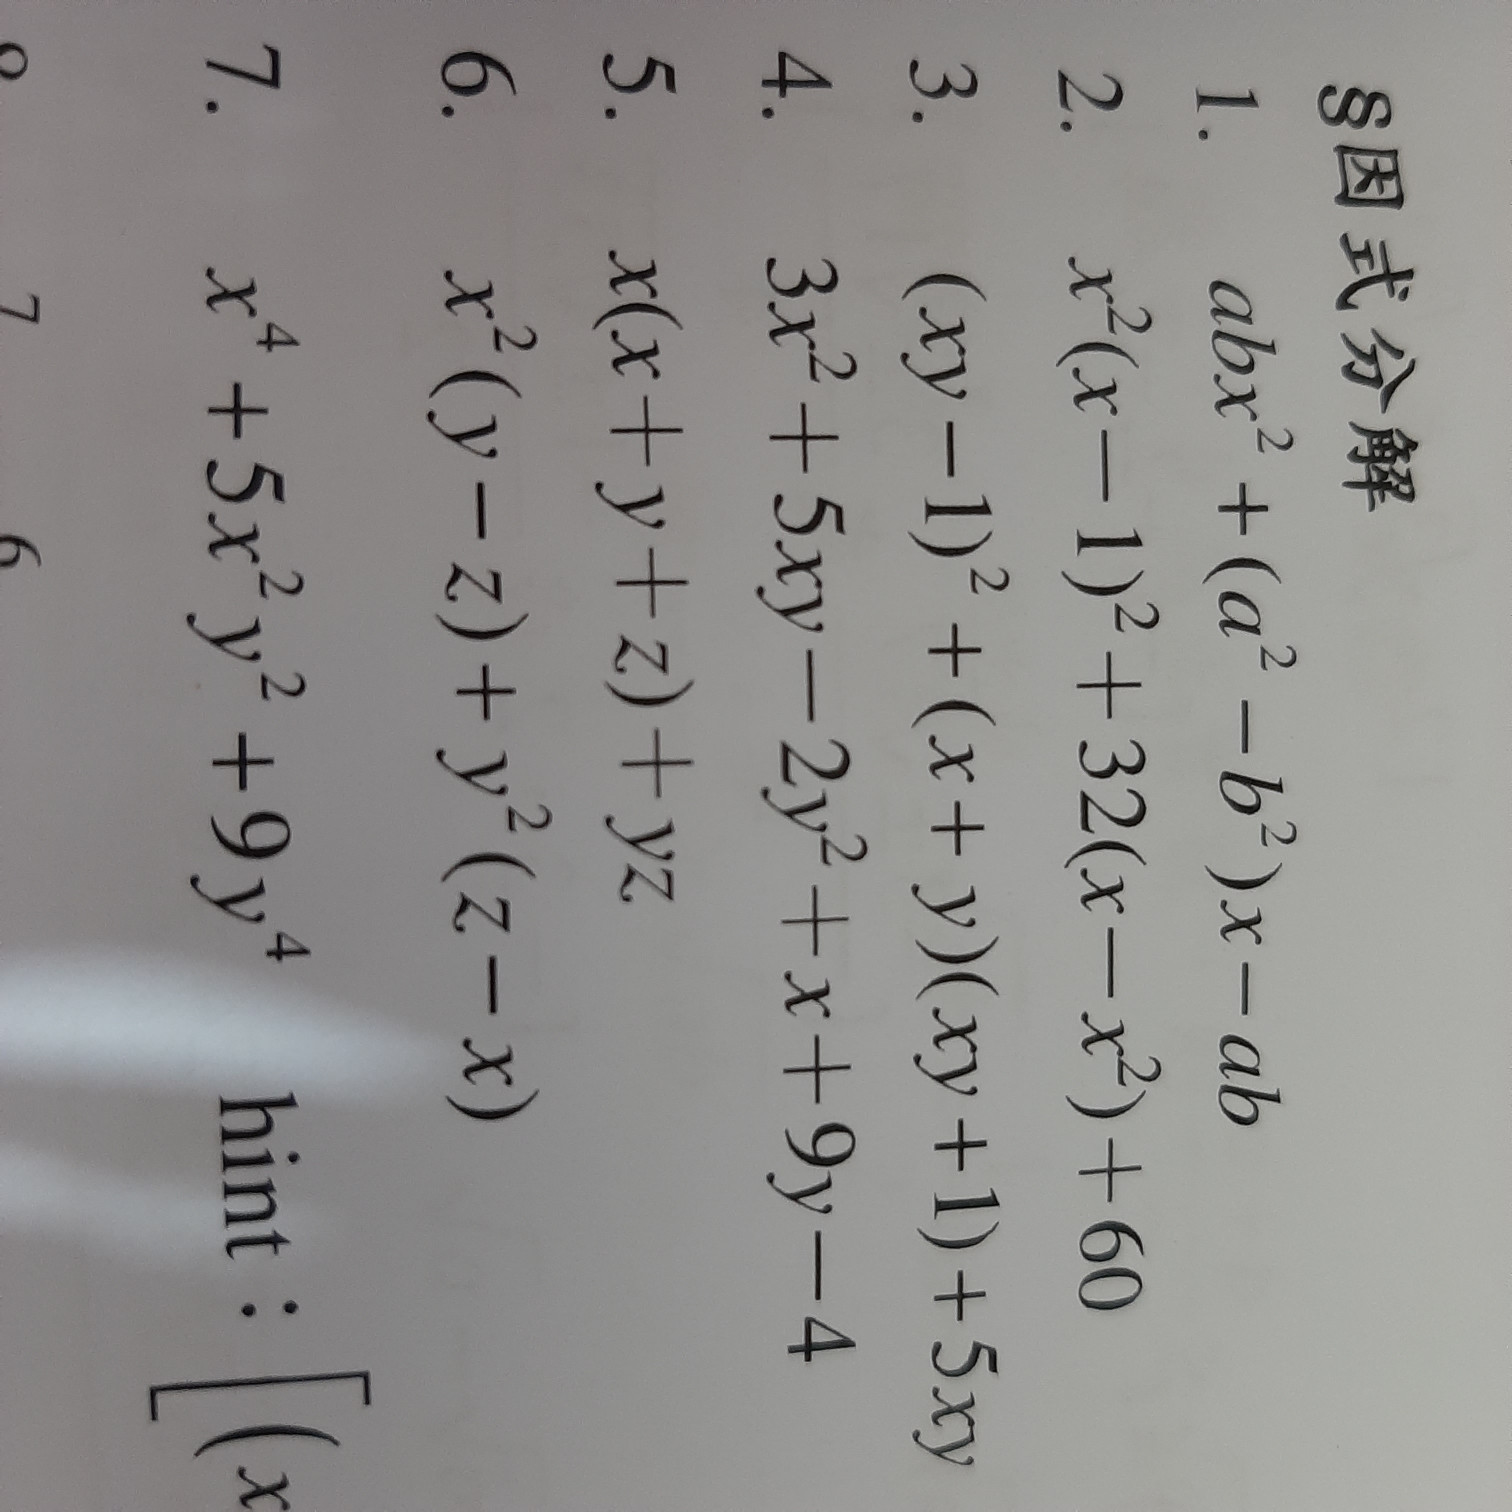 §因式分解
1. abx² + (a² − b²)x − ab
2. x²(x − 1)² + 32(x − x²) + 60
3. (xy − 1)² + (x + y)(xy + 1) + 5xy
4. 3x² + 5xy − 2y² + x + 9y − 4
5. x(x + y + z) + yz
6. x²(y − z) + y²(z − x)
7. x⁴ + 5x²y² + 9y⁴ hint : [(x